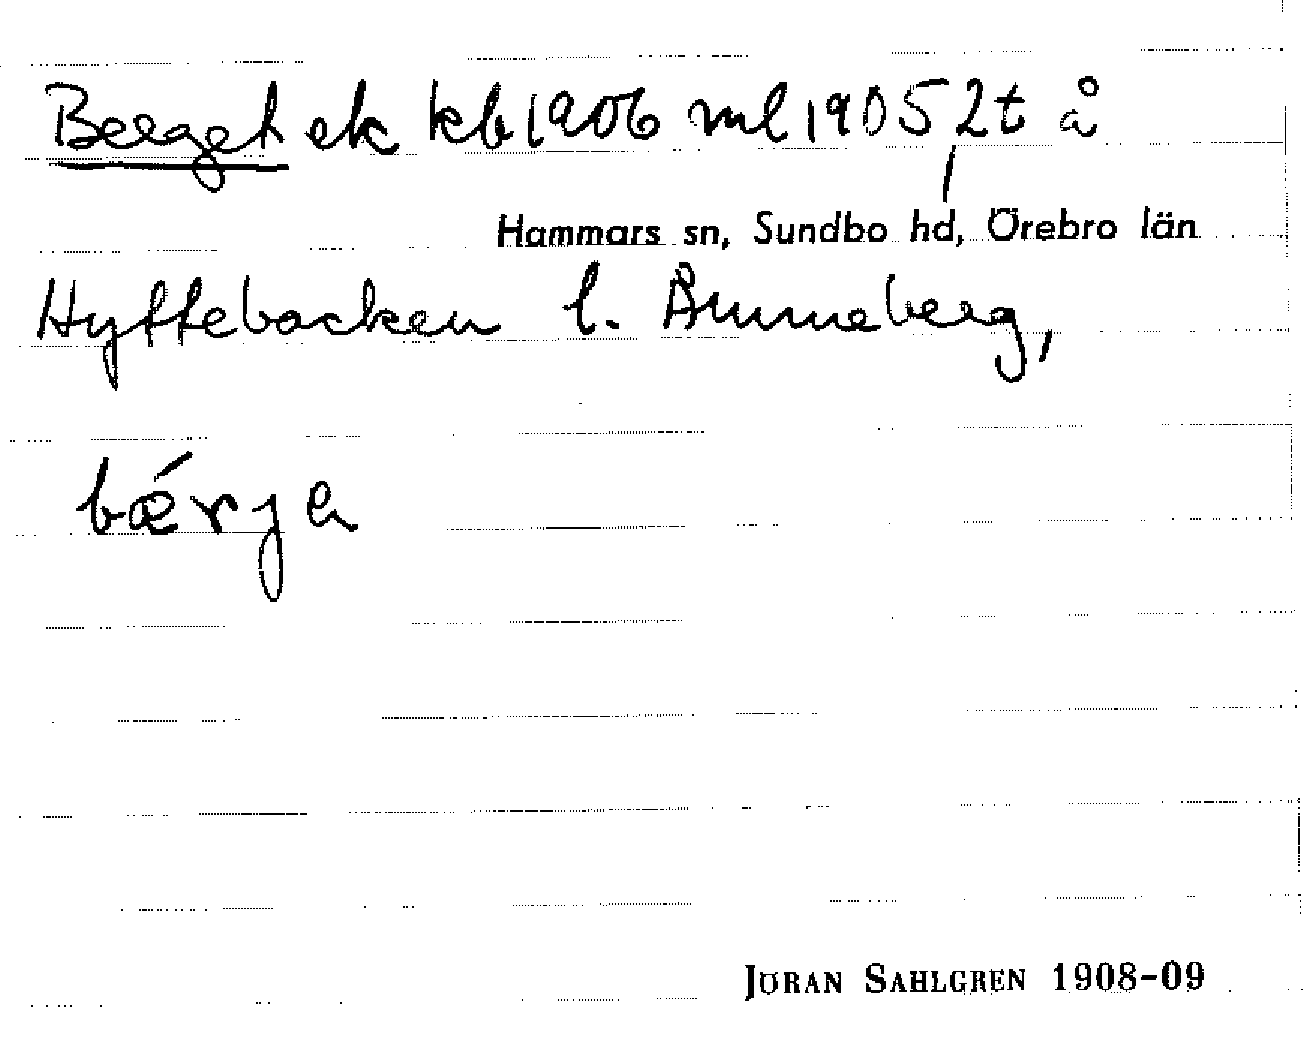 Berget ek kb 1906 ml 1905, 2t å
Hammars sn, Sundbo hd, Örebro län
Hyttebacken l. Åmmeberg,
bǽrja
JÖRAN SAHLGREN 1908-09